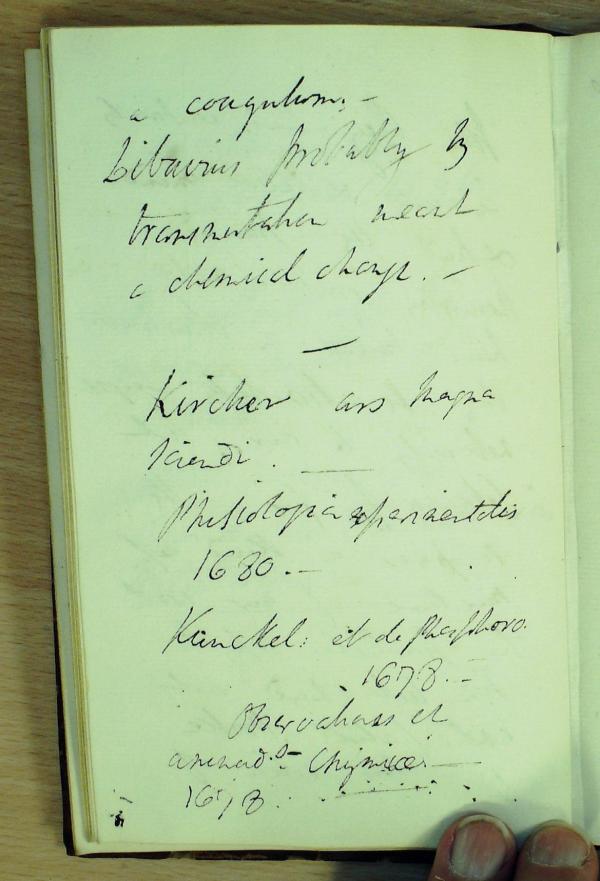 a coagulum. –
Libavius probably by
transmutation meant
a chemical change. –
—
Kircher ars magna
sciendi. —
Phisiologia experimentalis
1680. –
Kunckel: et de Phosphoro
1678. –
Observationes et
animad.s Chymicae. —
1678.